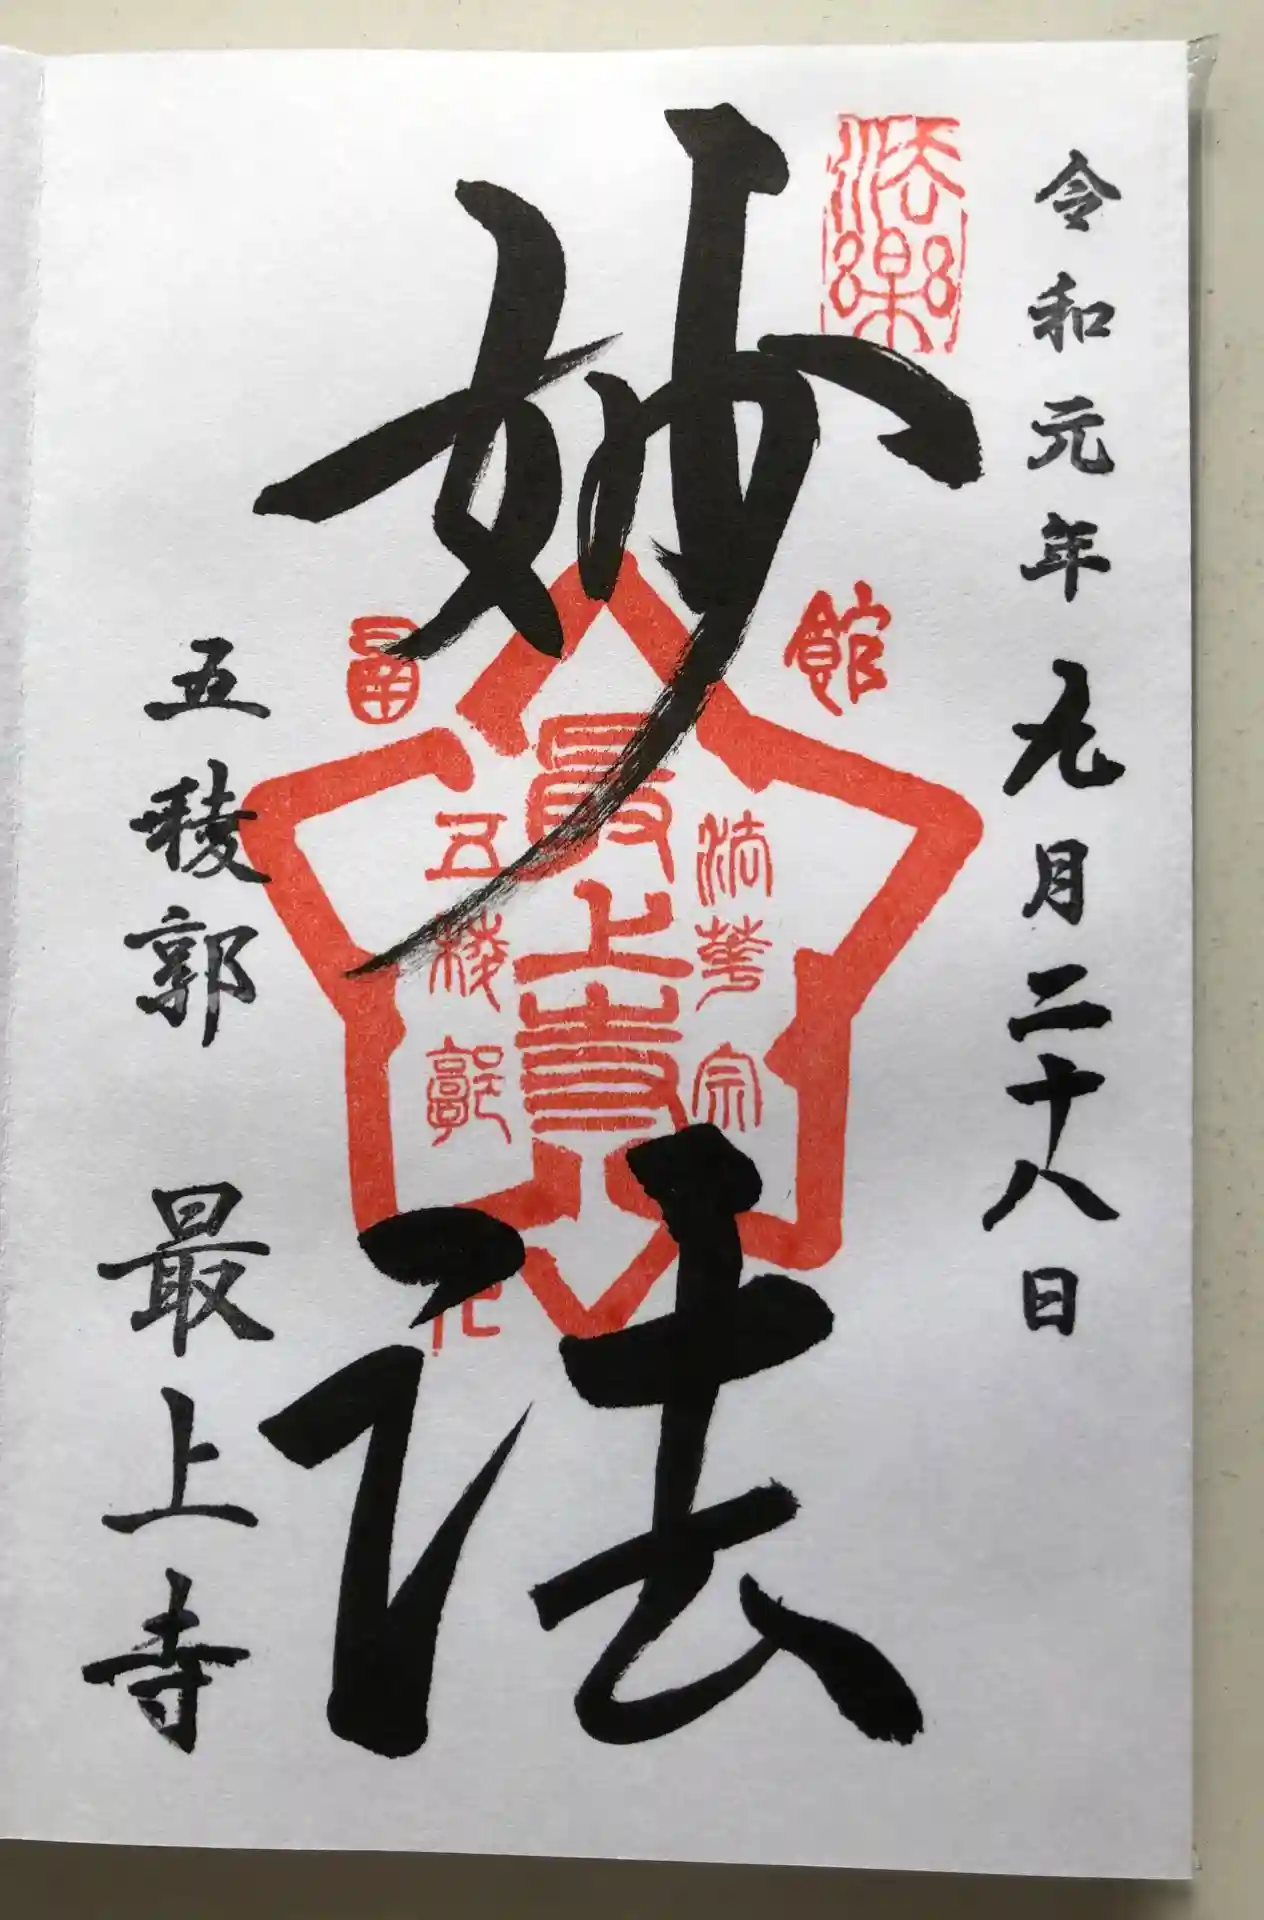 令和元年九月二十八日
法楽
妙法
館
函
法華宗
最上寺
五稜郭
五稜郭 最上寺